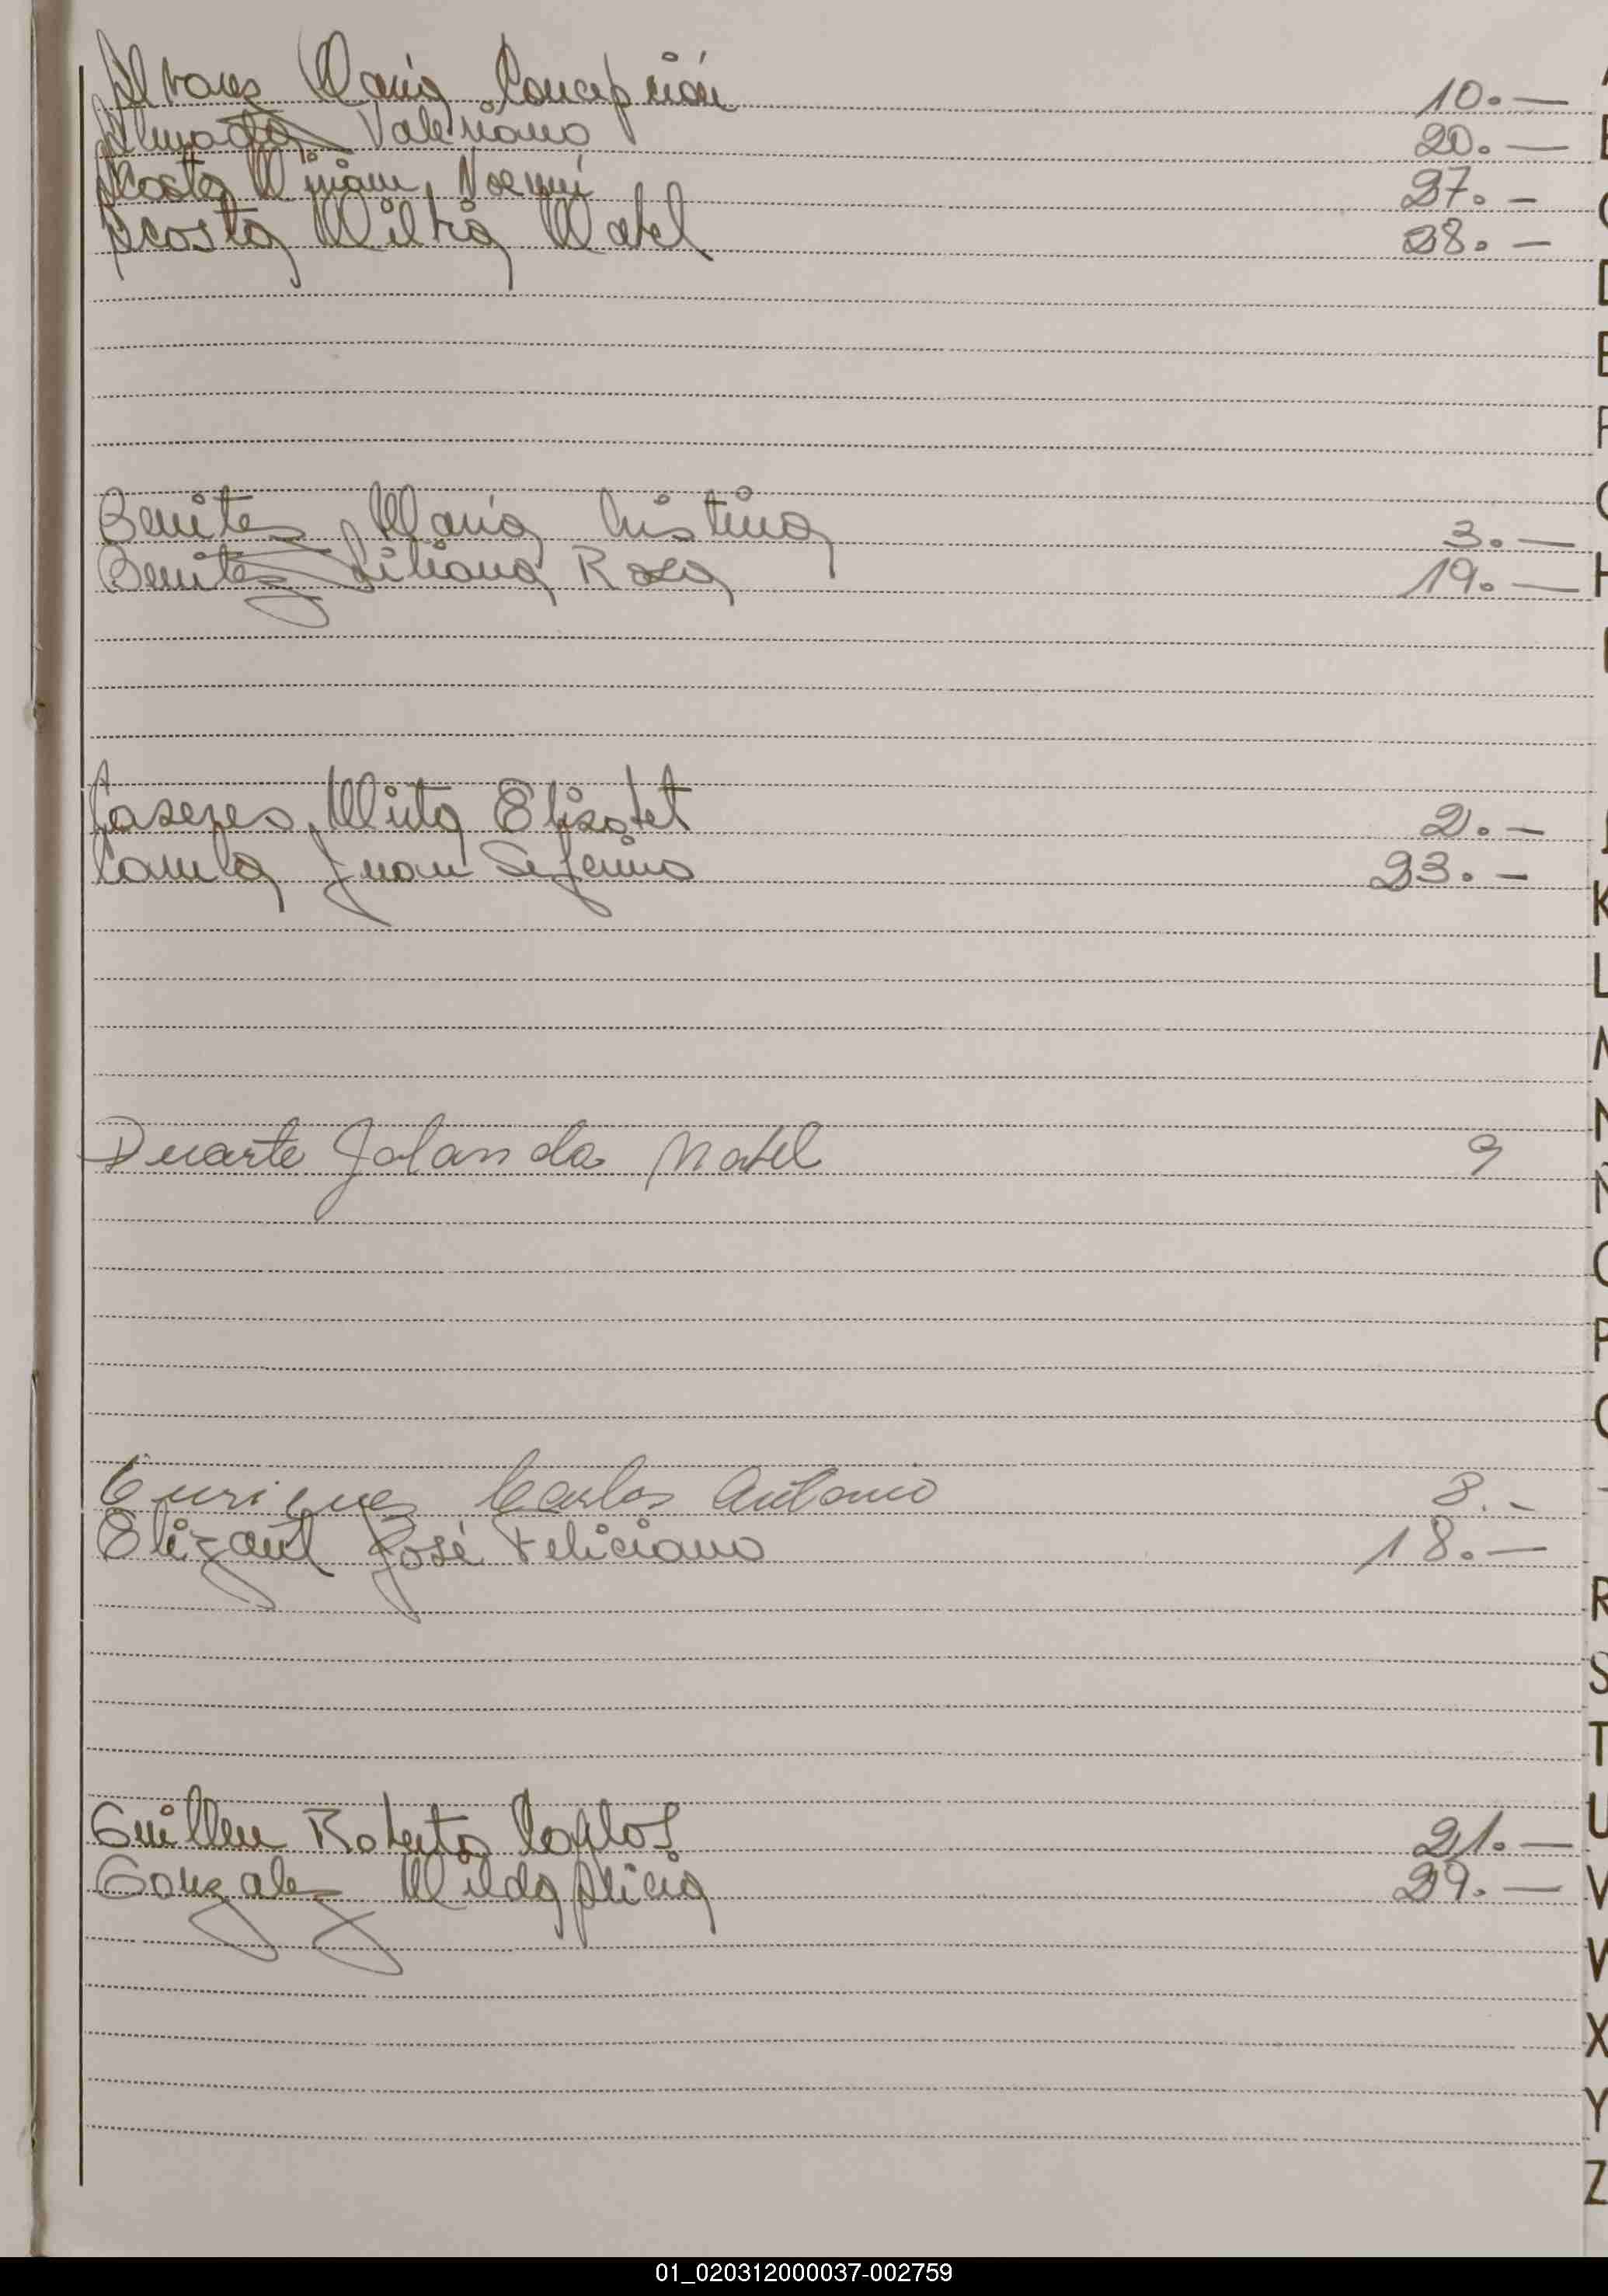 Alvares María Concepción 10.—
Almada Valeriano 20.—
Acosta Miriam Noemí 27.—
Acosta Milka Mabel 28.—
Benites María Cristina 3.—
Benitez Liliana Rosa 19.—
Caseres Mirta Elizabet 2.—
Juan Seferino 23.—
Duarte Jolanda Mabel 9
Enriques Carlos Antonio 8.—
Elizaul José Feliciano 18.—
Guillen Roberto Carlos 21.—
Gonzalez Milda Alicia 29.—
E
D
E
H
K
L
Ñ
P
R
S
T
U
V
W
X
Y
Z
01_020312000037-002759